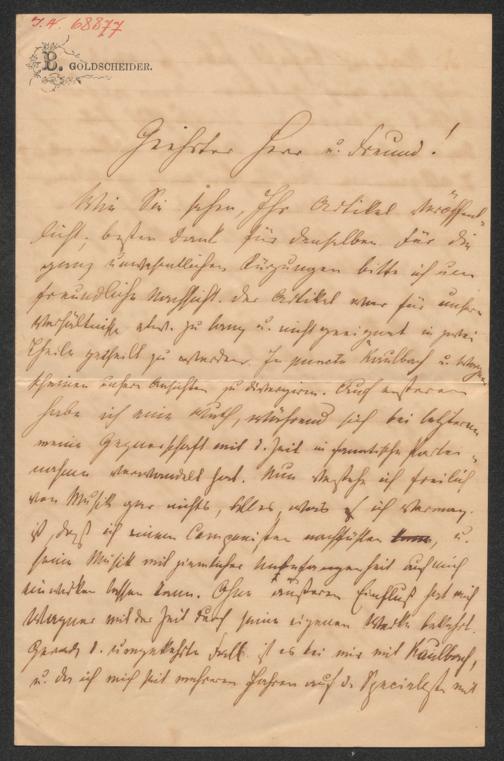 J.N. 68877
B. GOLDSCHEIDER.
Geehrter Herr u. Freund!
Wie Sie sehen, Ihr Artikel veröffent-
licht, besten Dank für denselben. Für die
ganz unwesentlichen Kürzungen bitte ich um
freundliche Nachsicht. Der Artikel war für unsere
Verhältnisse etw. zu lang u. nicht geeignet in zwei
Theile getheilt zu werden. In puncto Kaulbach u. Wagner
scheinen unsere Ansichten zu divergiren. Auf ersteren
habe ich eine Wuth, während sich bei letzterem
meine Gegnerschaft mit d. Zeit in fanatische Partei-
nahme verwandelt hat. Nun verstehe ich freilich
von Musik gar nichts, Alles, was ich vermag
ist, daß ich einem Componisten nachfühlen, u.
seine Musik mit ziemlicher Unbefangenheit auf mich
einwirken lassen kann. Ohne äußeren Einfluß hat mich
Wagner mit der Zeit durch seine eigenen Werke bekehrt.
Gerade d. umgekehrte Fall ist es bei mir mit Kaulbach,
u. da ich mich seit mehreren Jahren auf d. mit